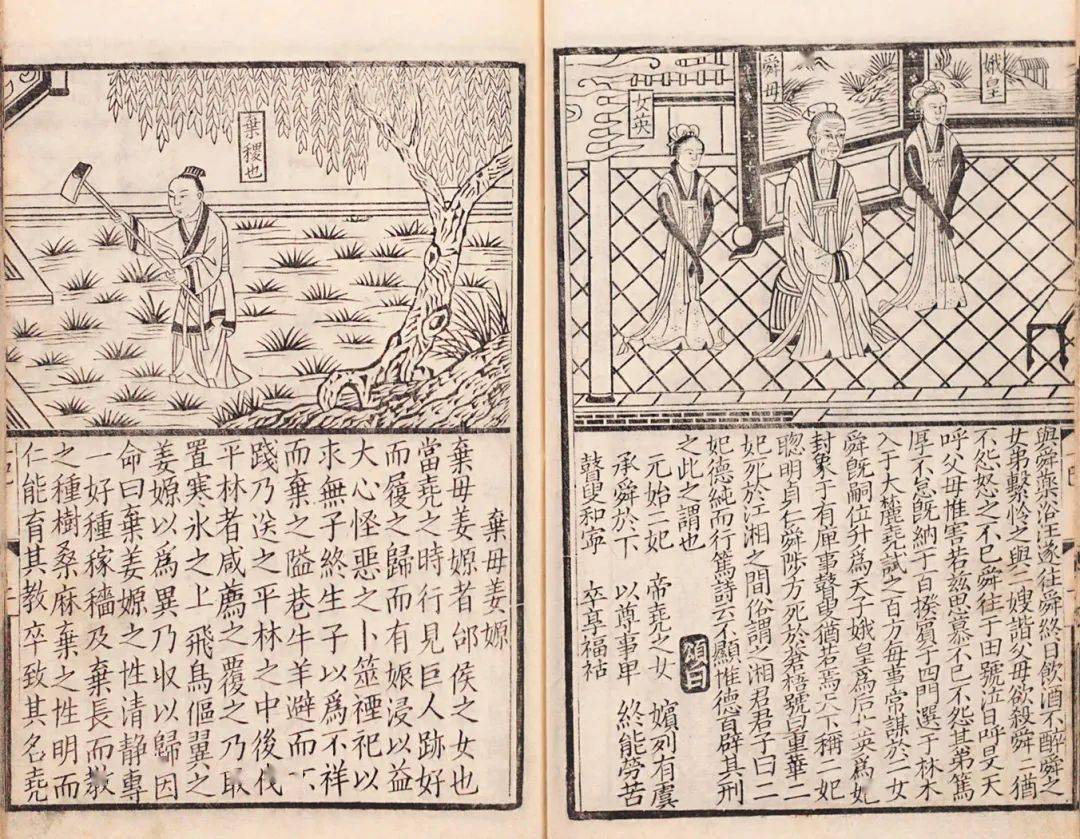 娥皇
舜母
女英
與舜藥浴汪遂往舜終日飲酒不醉舜之
女弟繫怜之與二嫂諧父母欲殺舜二猶
不怨怒之不已舜往于田號泣日呼旻天
呼父母惟害若兹思慕不已不怨其弟篤
厚不怠既納于百揆賓于四門選于林木
入于大麓堯試之百方每事常謀於二女
舜既嗣位升爲天子娥皇爲后女英爲妃
封象于有庳事瞽叟猶若焉天下稱二妃
聰明貞仁舜陟方死於蒼梧號曰重華二
妃死於江湘之間俗謂之湘君君子曰二
妃德純而行篤詩云不顯惟德百辟其刑
之此之謂也
頌曰
元始二妃 帝堯之女 嬪列有虞
承舜於下 以尊事卑 終能勞苦
瞽叟和寧 卒享福祜
棄稷也
棄母姜嫄
棄母姜嫄者邰侯之女也
當堯之時行見巨人跡好
而履之歸而有娠浸以益
大心怪惡之卜筮禋祀以
求無子終生子以爲不祥
而棄之隘巷牛羊避而不
踐乃送之平林之中後伐
平林者咸薦之覆之乃取
置寒冰之上飛鳥傴翼之
姜嫄以爲異乃收以歸因
命曰棄姜嫄之性清静專
一好種稼穡及棄長而教
之種樹桑麻棄之性明而
仁能育其教卒致其名堯